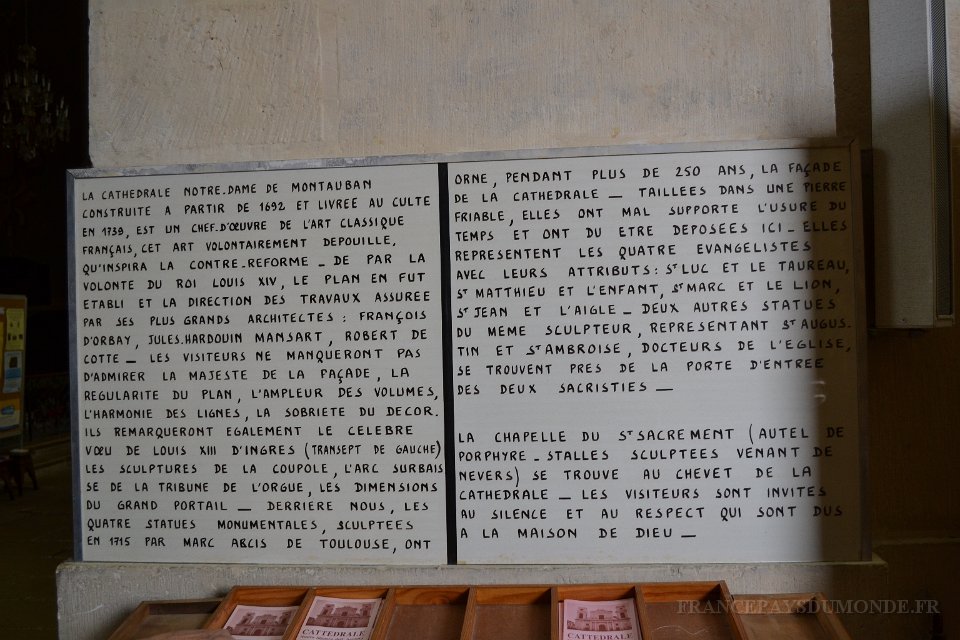 LA CATHEDRALE NOTRE.DAME DE MONTAUBAN
CONSTRUITE A PARTIR DE 1692 ET LIVREE AU CULTE
EN 1739, EST UN CHEF.D'ŒUVRE DE L'ART CLASSIQUE
FRANÇAIS, CET ART VOLONTAIREMENT DEPOUILLE,
QU'INSPIRA LA CONTRE-REFORME _ DE PAR LA
VOLONTE DU ROI LOUIS XIV, LE PLAN EN FUT
ETABLI ET LA DIRECTION DES TRAVAUX ASSUREE
PAR SES PLUS GRANDS ARCHITECTES : FRANÇOIS
D'ORBAY, JULES.HARDOUIN MANSART, ROBERT DE
COTTE _ LES VISITEURS NE MANQUERONT PAS
D'ADMIRER LA MAJESTE DE LA FAÇADE, LA
REGULARITE DU PLAN, L'AMPLEUR DES VOLUMES,
L'HARMONIE DES LIGNES, LA SOBRIETE DU DECOR.
ILS REMARQUERONT EGALEMENT LE CELEBRE
VŒU DE LOUIS XIII D'INGRES (TRANSEPT DE GAUCHE)
LES SCULPTURES DE LA COUPOLE, L'ARC SURBAIS
SE DE LA TRIBUNE DE L'ORGUE, LES DIMENSIONS
DU GRAND PORTAIL _ DERRIERE NOUS, LES
QUATRE STATUES MONUMENTALES, SCULPTEES
EN 1715 PAR MARC ABCIS DE TOULOUSE, ONT
ORNE, PENDANT PLUS DE 250 ANS, LA FAÇADE
DE LA CATHEDRALE _ TAILLEES DANS UNE PIERRE
FRIABLE, ELLES ONT MAL SUPPORTE L'USURE DU
TEMPS ET ONT DU ETRE DEPOSEES ICI _ ELLES
REPRESENTENT LES QUATRE EVANGELISTES
AVEC LEURS ATTRIBUTS : ST LUC ET LE TAUREAU,
ST MATTHIEU ET L'ENFANT, ST MARC ET LE LION,
ST JEAN ET L'AIGLE _ DEUX AUTRES STATUES
DU MEME SCULPTEUR, REPRESENTANT ST AUGUS-
TIN ET ST AMBROISE, DOCTEURS DE L'EGLISE,
SE TROUVENT PRES DE LA PORTE D'ENTREE
DES DEUX SACRISTIES _
LA CHAPELLE DU ST SACREMENT (AUTEL DE
PORPHYRE _ STALLES SCULPTEES VENANT DE
NEVERS) SE TROUVE AU CHEVET DE LA
CATHEDRALE _ LES VISITEURS SONT INVITES
AU SILENCE ET AU RESPECT QUI SONT DUS
A LA MAISON DE DIEU _
CATTEDRALE
CATHEDRALE
FRANCEPAYSDUMONDE.FR